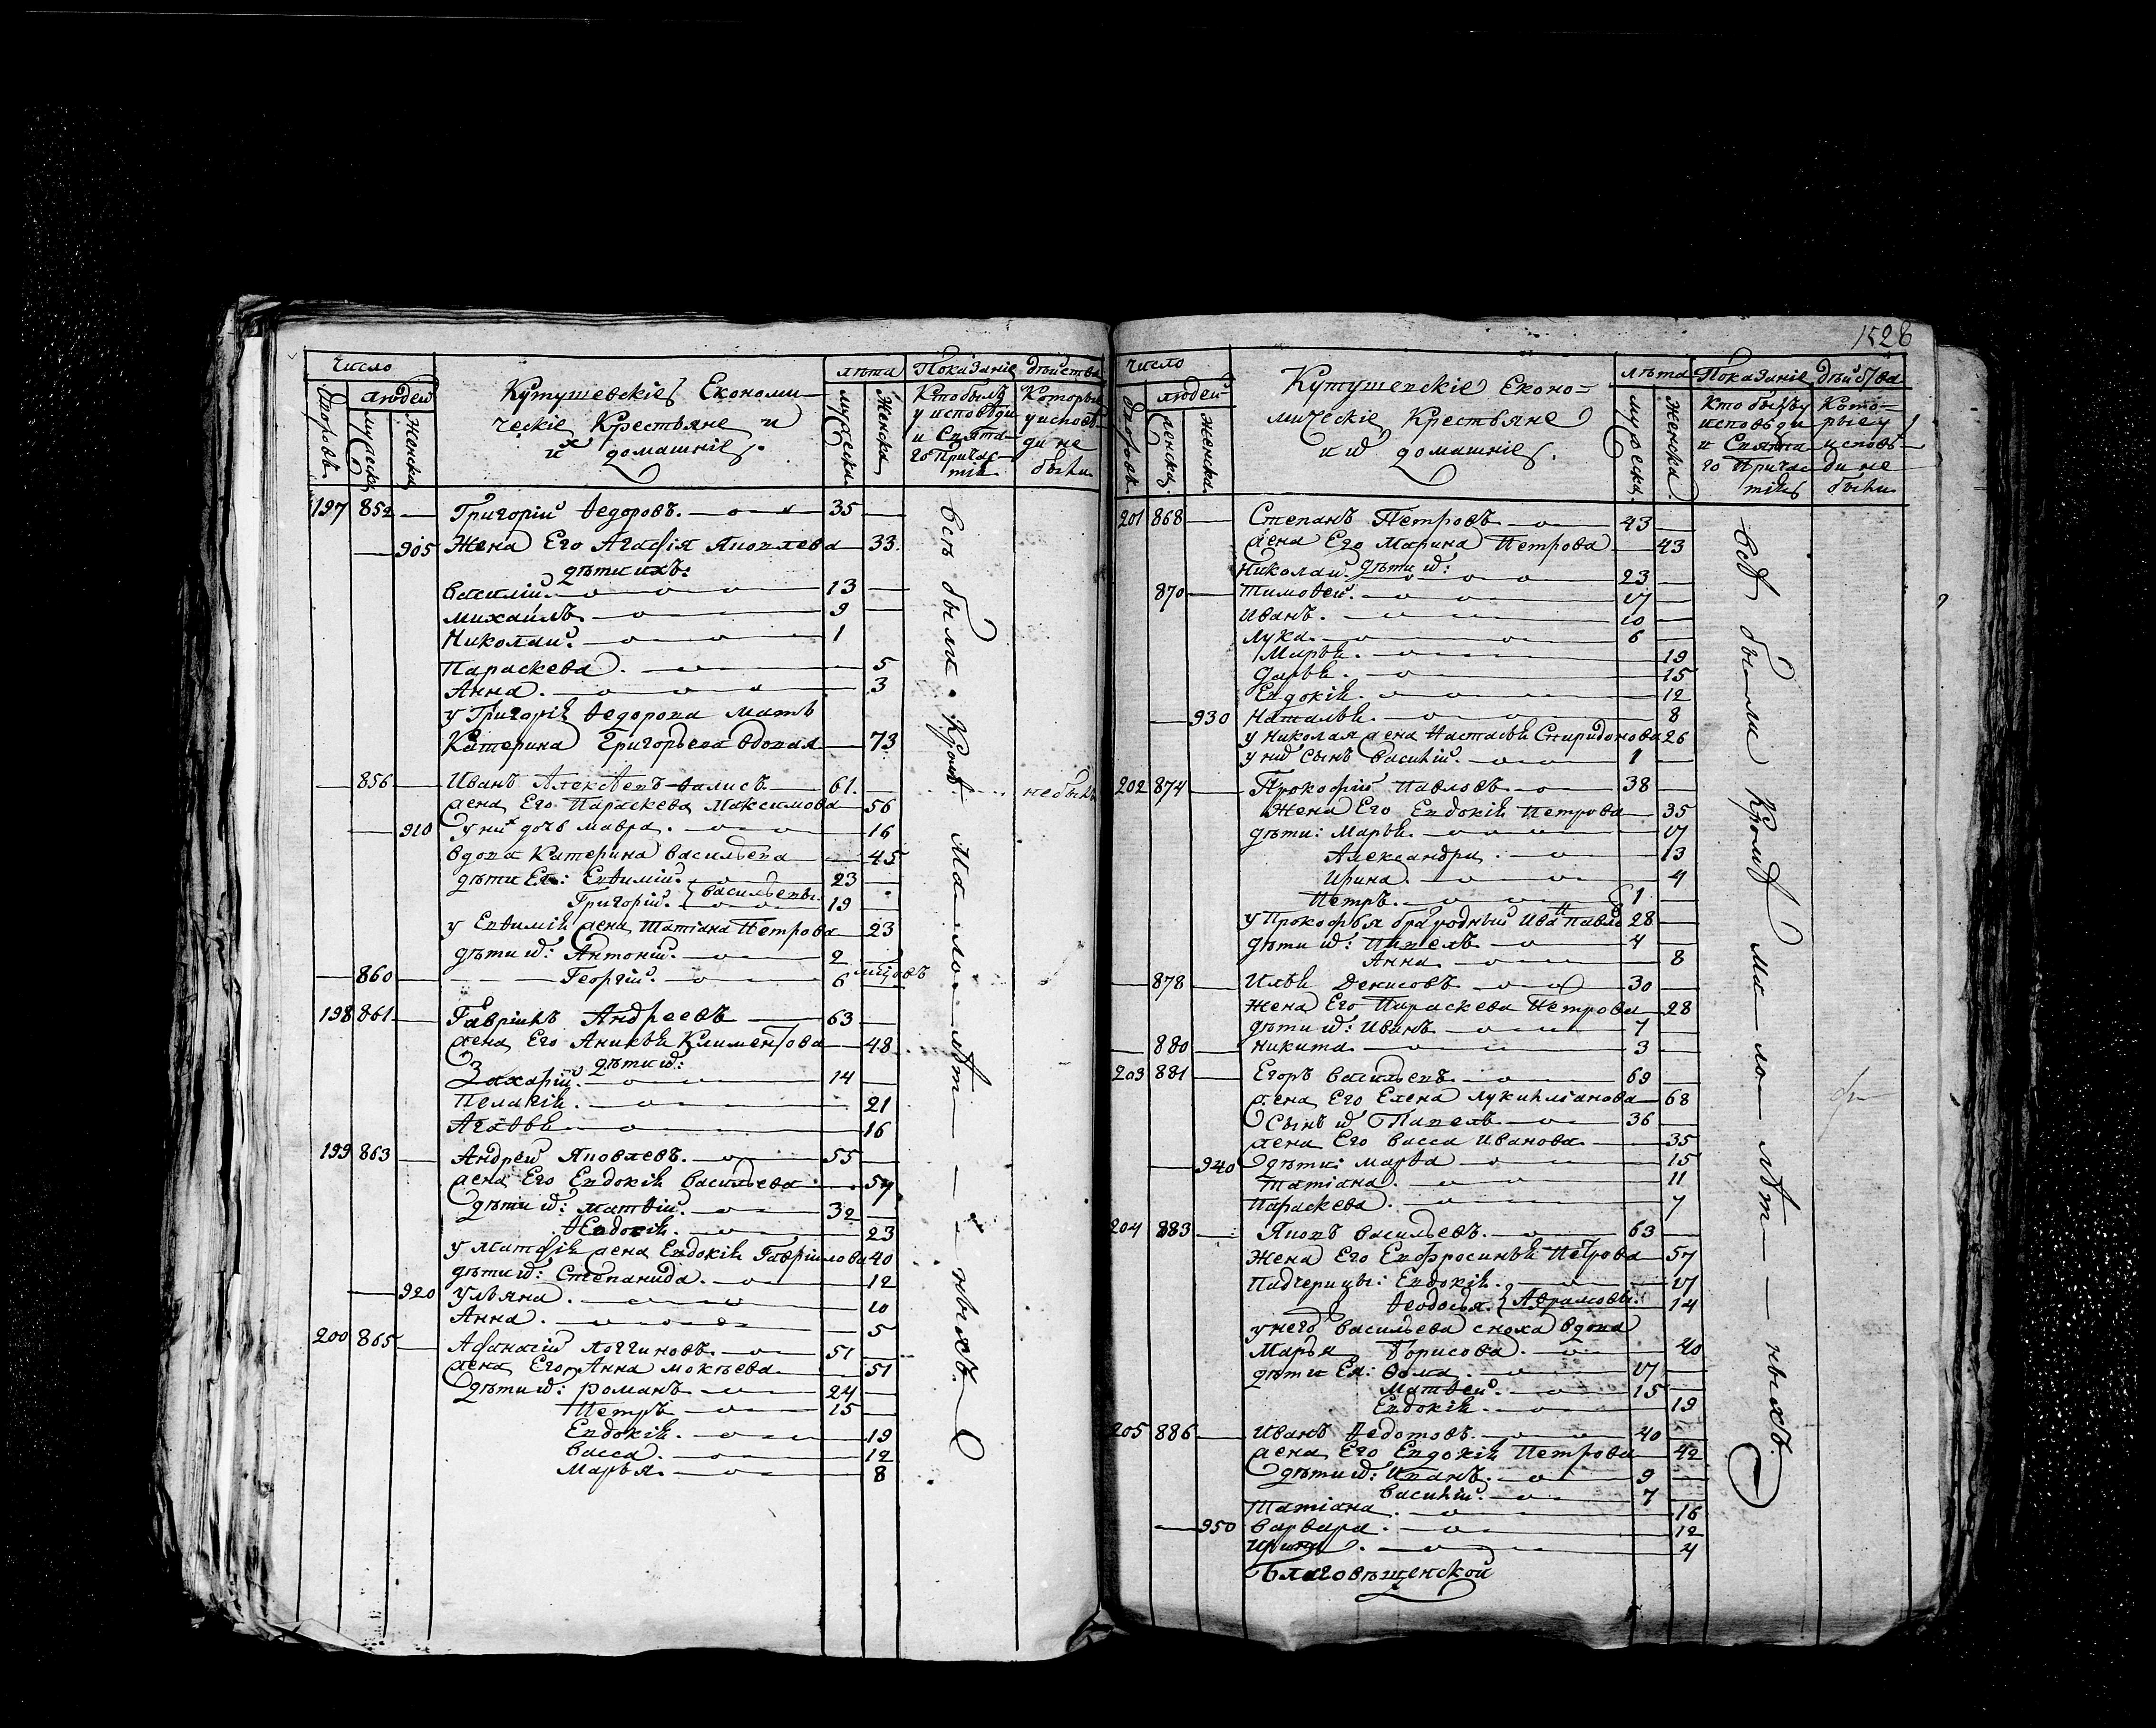 Число
людей
Дворовъ
мужеска
женска
Кутушевскіе Економи-
ческіе Крестьяне и
их домашніе.
лѣта
мужеска
женска
Показаніе дѣйства
Кто былъ
у исповѣди
и Свята-
го Причас-
тія
Которые
у исповѣ-
ди не
были
197 852 Григорій Ѳедоровъ. 35
905 Жена Его Агафія Яковлева 33.
дѣти ихъ:
Василій. 13
Михаилъ 9
Николай. 1
Параскева. 5
Анна. 3
у Григорія Ѳедорова мать
Катерина Григорьева вдовая 73
856 Иванъ 61. не былъ
жена Его Параскева Максимова 56
910 у них дочь Мавра. 16
вдова Катерина Васильева 45
дѣти Ея: Евѳимій. 23
Григорій. Васильевы. 19
у Евѳимія жена Татіана Петрова 23
дѣти их: Антоній. 2
860 Георгій. 6
198 861 Гавріилъ Андреевъ 63
жена Его Климентова 48
дѣти их:
Захарій. 14
Пелагія. 21
Агаѳья 16
199 863 Андрей Яковлевъ. 55
жена Его Евдокія Васильева. 54
дѣти их: Матвій. 32
Евдокія. 23
у Матфія жена Евдокія Гавріилова 40
дѣти их: Степанида. 12
920 Ульяна. 10
Анна. 5
200 865 Афанасій Логгиновъ. 51
жена Его Анна Мокѣева 51
дѣти их: Романъ 24
Петръ 15
Евдокія. 19
Васса. 12
Марья. 8
всѣ были. Кромѣ ма-ло-лѣт-ныхъ.
1528
Число
людей
Дворовъ
женска
Кутушевскіе Еконо=
мическіе Крестьяне
и их домашніе.
лѣта
мужеска.
женска.
Показаніе дѣйства
Кто былъ у
исповѣди
и Свята-
го Причас-
тія
Кото=
рые у
исповѣ-
ди не
были
201 868 Степанъ Петровъ 43
жена Его Марина Петрова 43
Николай. дѣти их: 23
870 Тимоѳей. 17
Иванъ. 10
Лука. 6
Марья. 19
Дарья. 15
Евдокія. 12
930 Наталья. 8
у Николая жена Настасья Спиридонова 26
у них сынъ Василій. 1
202 874 Прокофій Павловъ 38
Жена Его Евдокія Петрова 35
дѣти: Марья. 17
Александра. 13
Ирина. 4
Петръ. 1
у Прокофья брат родный Иван Павло 28
дѣти их: Павелъ 4
Анна 8
878 Илья Денисовъ 30
Жена Его Параскева Петрова 28
дѣти их: Иванъ 7
880 Никита 3
203 881 Егоръ Васильевъ. 69
жена Его Елена Лукиліанова 68
Сынъ их Павелъ 36
жена Его Васса Иванова. 35
940 дѣти: Марѳа 15
Татіана. 11
Параскева. 7
204 883 Яковъ Васильевъ. 63
Жена Его Евфросинья Петрова 57
Падчерицы: Евдокія. 17
Ѳеодосья. Абрамовы. 14
у него Васильева сноха вдова
Марья Борисова. 40
дѣти Ея: Ѳома. 17
Матвей. 15
Евдокія. 19
205 886 Иванъ Ѳедотовъ. 40
жена Его Евдокія Петрова 42
дѣти их: Иванъ. 9
Василій. 7
Татіана. 16
950 Варвара. 12
Ирина. 4
Благовѣщенской
всѣ были Кромѣ ма-ло-лѣт-ныхъ.